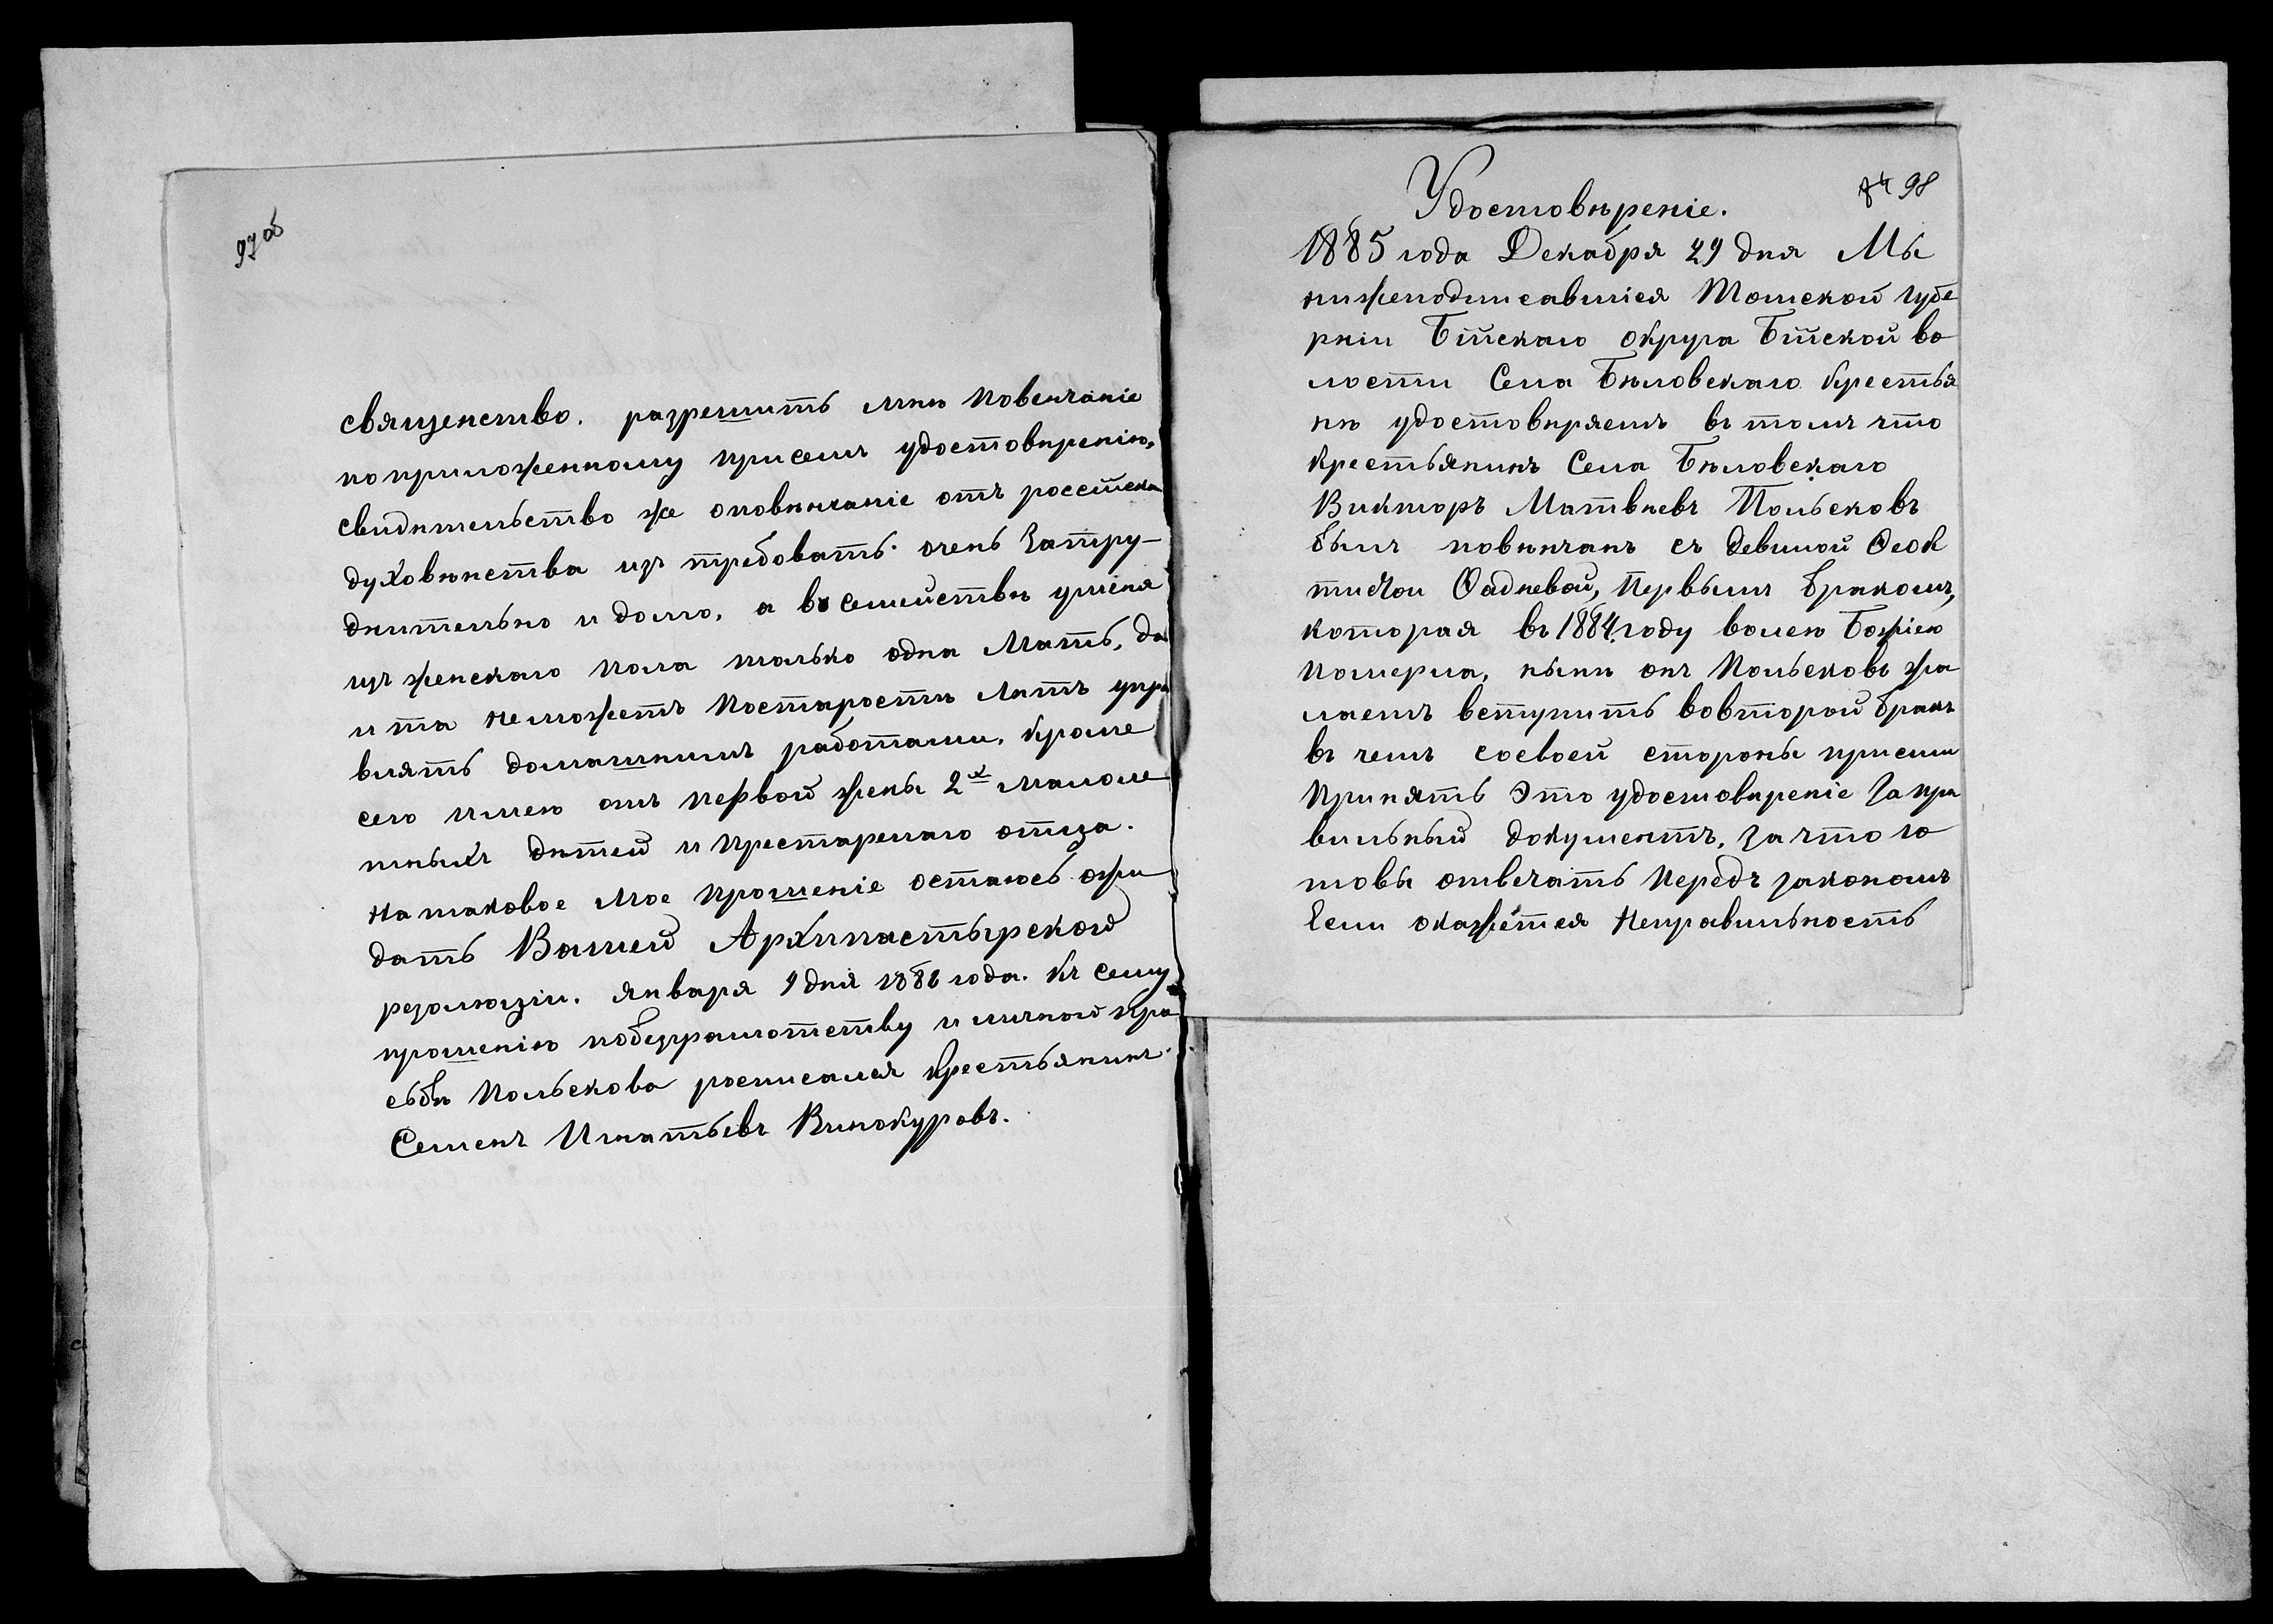 97 об
священство. разрешить мнѣ повенчаніе
по приложенному присемъ удостовѣренію,
свидѣтельство же оповѣнчаніе отъ россійска
духовѣнства изъ требовать очень затру-
днительно и долго, а всемействѣ уменя
изъ женскаго пола только одна мать, да
и та неможетъ постарости лѣтъ упра
влять домашнимъ работами. кроме
сего имею отъ первой жены 2х малоле
тныхъ дѣтей и престарелаго отца.
На таковое мое прошеніе остаюсь ожи
дать Вашей Архипастырской
резолюціи. января 9 дня 1886 года. Къ сему
прошенію побезграмотству и личной про
сьбѣ Польскова росписался крестьянинъ
Семенъ Игнатьевъ Винокуровъ.
98
Удостовѣреніе.
1885 года Декабря 29 дня Мы
нижеподписавшіеся Томской губе
рніи Бійскаго округа Бійской во
лости Села Бѣловскаго крестья
нѣ удостовѣряемъ въ томъ что
крестьянинъ Села Бѣловскаго
Викторъ Матвѣевъ Польсковъ
былъ повѣнчанъ съ девицой Ѳеок
тистой Ѳадѣевой, первымъ бракомъ,
которая въ 1884 году волею Божіею
померла, нынѣ онъ Польсковъ жа
лаетъ вступить вовторой бракъ
въ чемъ соевоей стороны присими
принять это удостовѣреніе за пра
вильный документъ, за что го
товы отвечать передъ закономъ
Если окажется неправильность